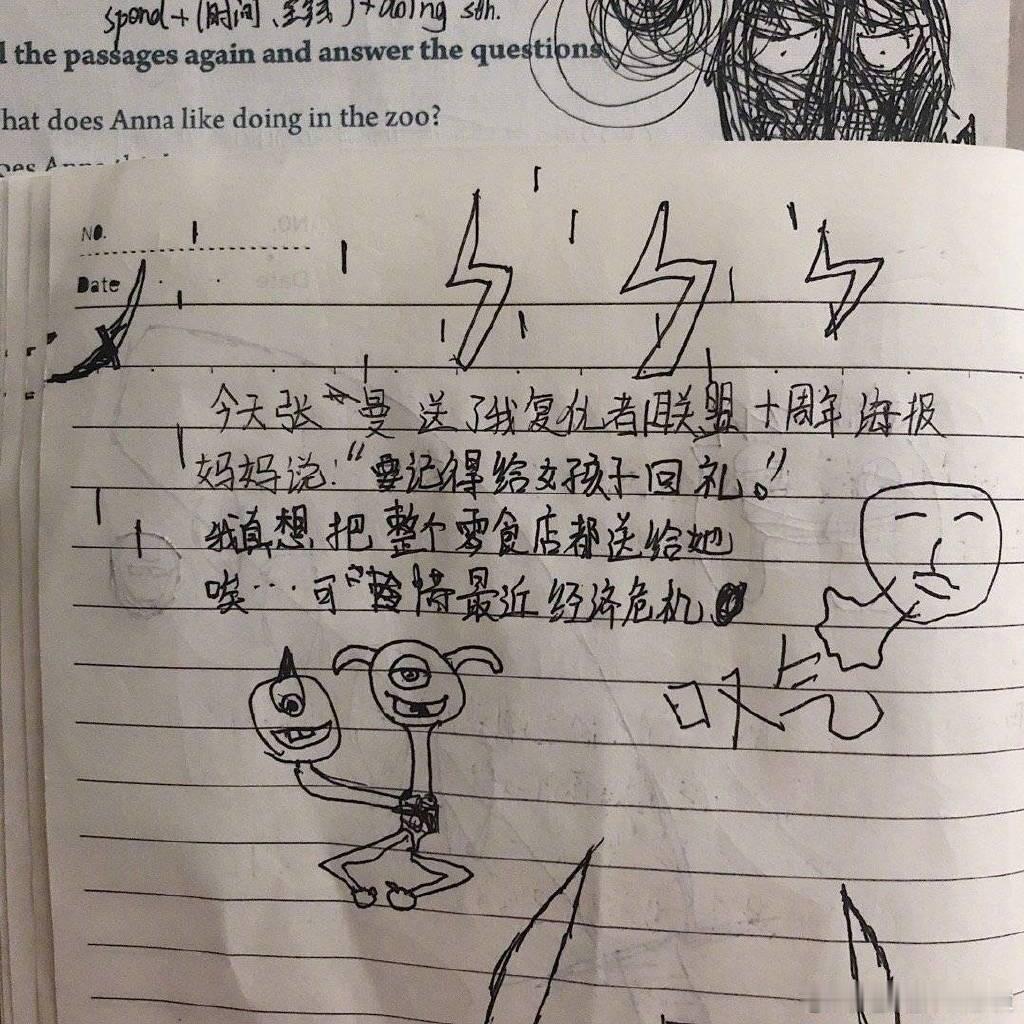 spend+(时间、金钱)+doing sth.
the passages again and answer the questions
hat does Anna like doing in the zoo?
oes Anna
NO.
Date
今天张 曼 送了我复仇者联盟十周年海报
妈妈说:“要记得给女孩子回礼。”
我真想把整个零食店都送给她
唉…可 惜最近经济危机
叹